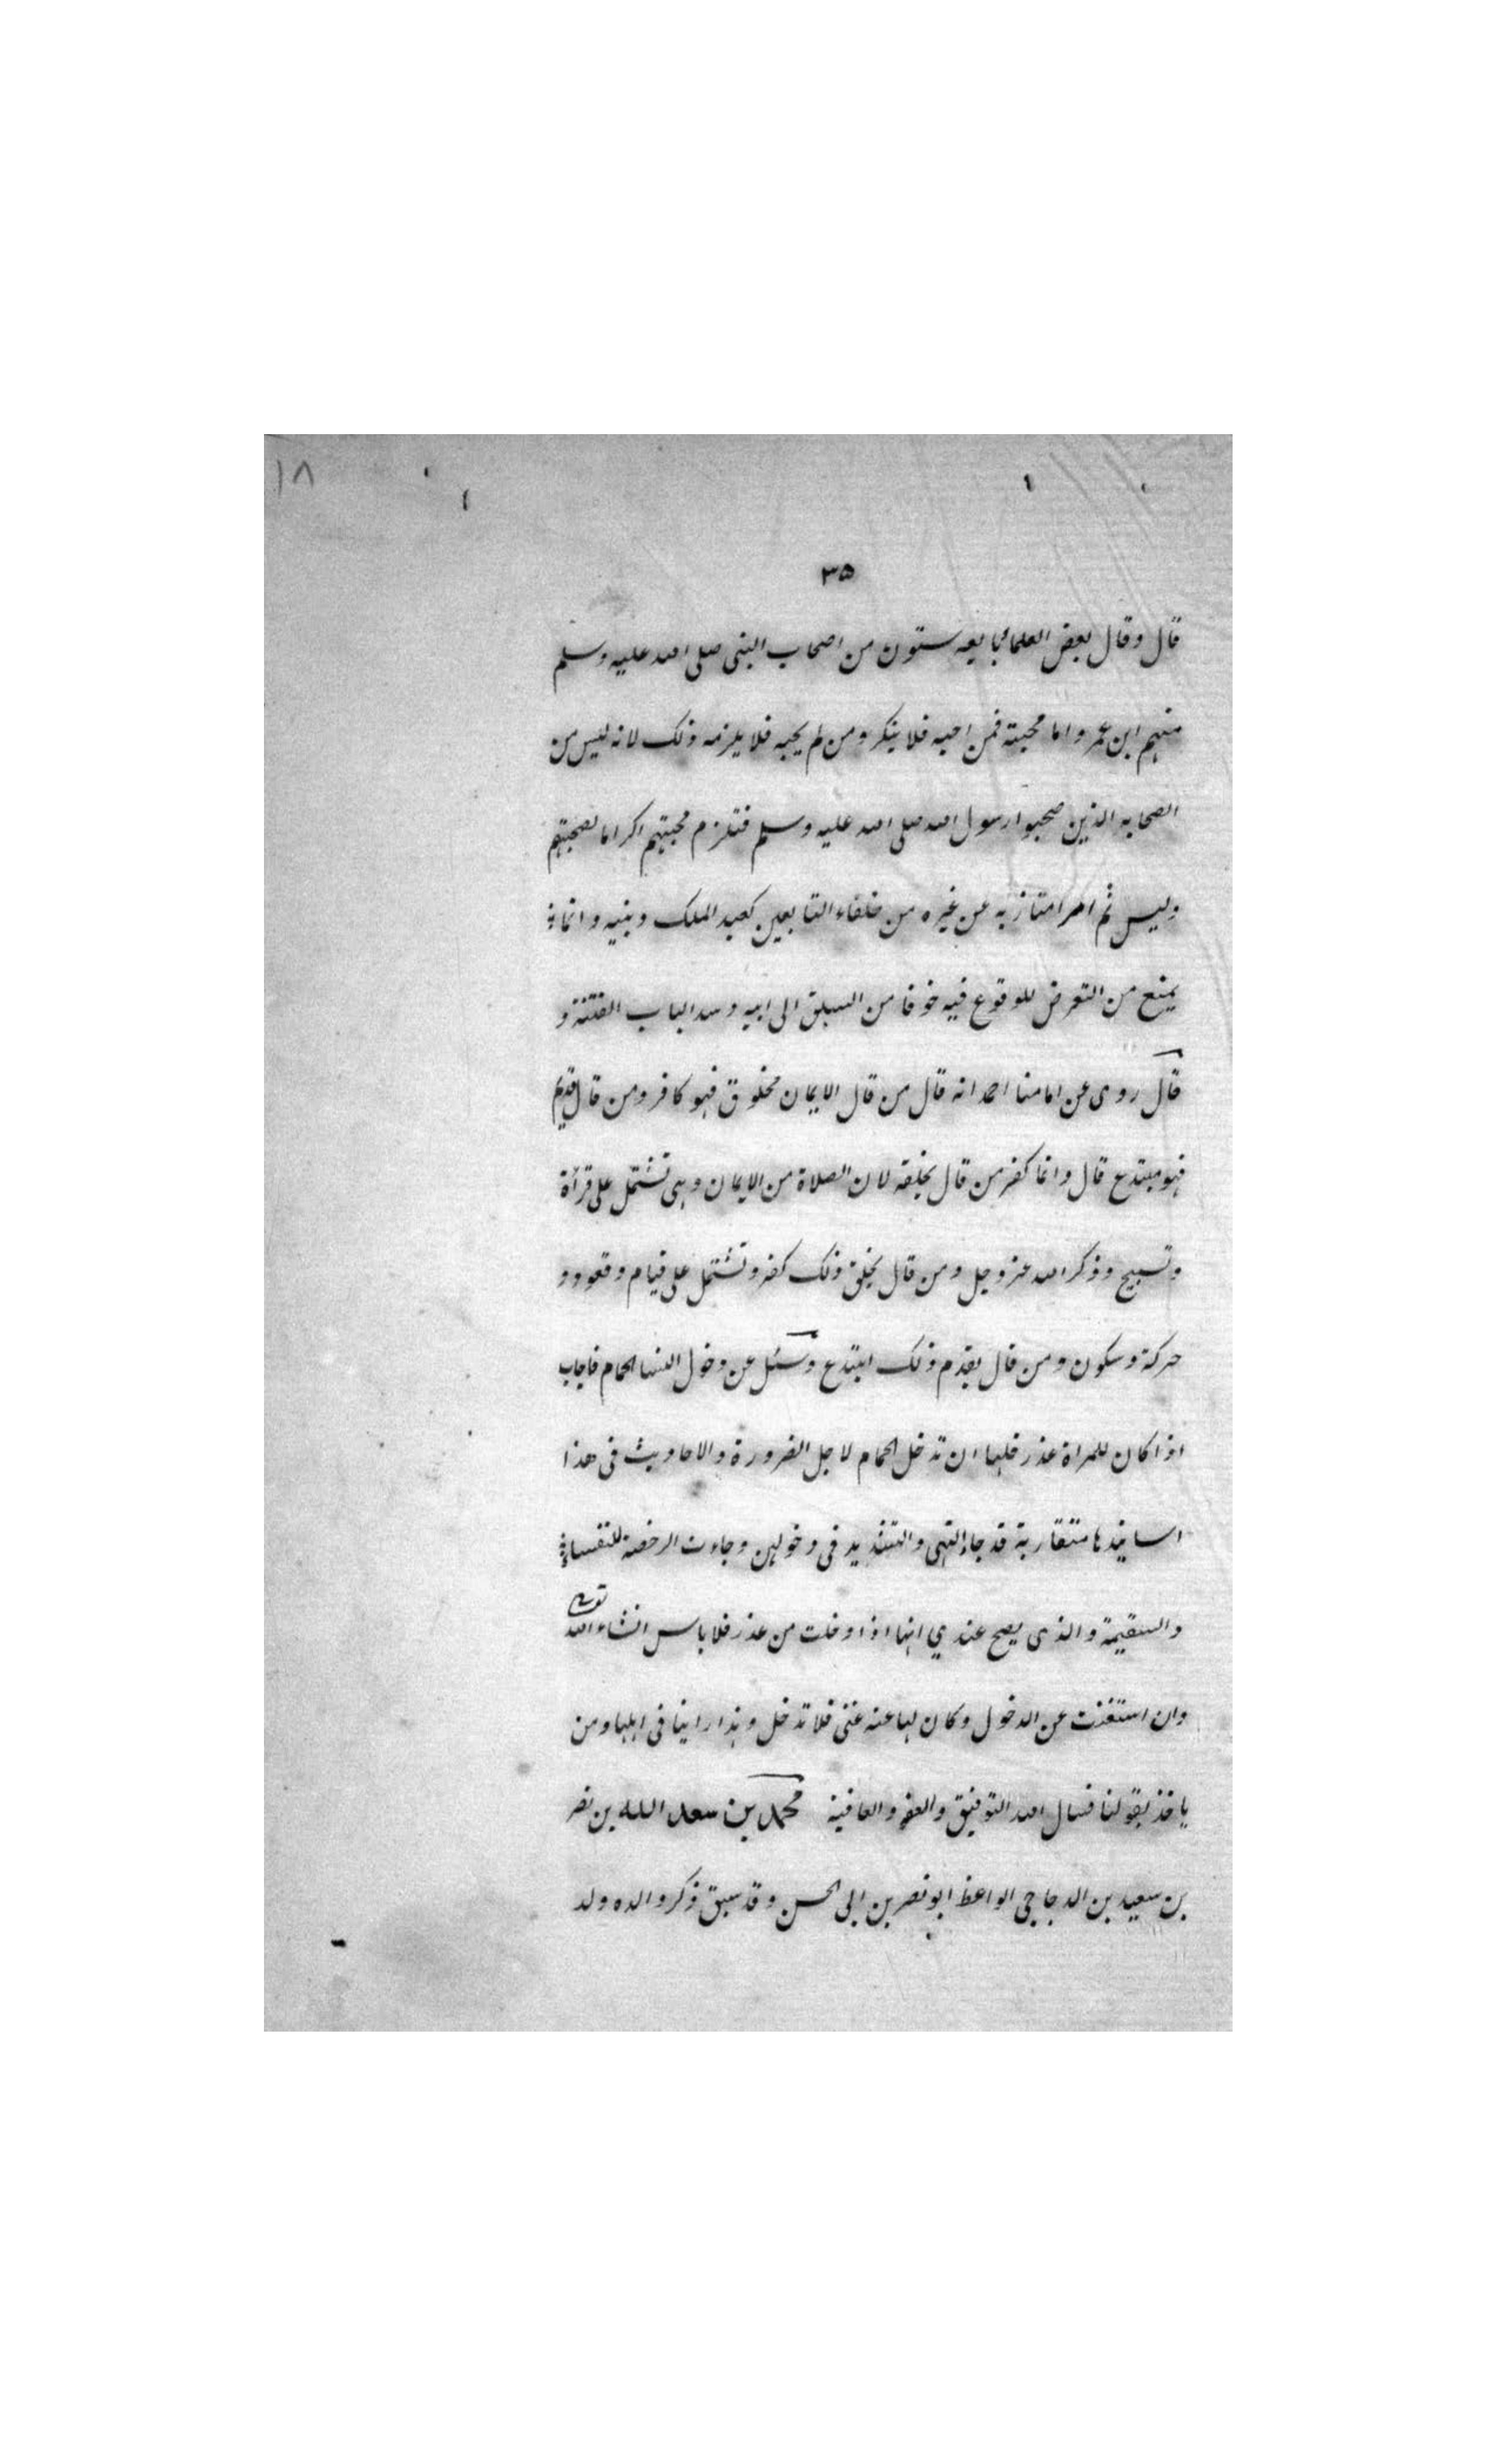 ١٨
٣٥
قال وقال بعض العلماء بايعه ستون من اصحاب النبي صلى الله عليه وسلم
منهم ابن عمر واما محبته فمن احبه فلا ينكر ومن لم يحبه فلا يلزمه ذلك لانه ليس من
الصحابه الذين صحبوا رسول الله صلى الله عليه وسلم فتلزم محبتهم اكراما لصحبتهم
وليس ثم امر امتاز به عن غيره من خلفاء التابعين كعبد الملك وبنيه وانما
يمنع من التعرض للوقوع فيه خوفا من التسلق الى ابيه وسد الباب الفتنة و
قال روى عن امامنا احمد انه قال من قال الايمان مخلوق فهو كافر ومن قال قديم
فهو مبتدع قال وانما كفر من قال بخلقه لان الصلاة من الايمان وهي تشتمل على قرأة
وتسبيح وذكر الله عز وجل ومن قال بخلق ذلك كفر وتشتمل على قيام وقعود و
حركة وسكون ومن قال بقدم ذلك ابتدع وسئل عن دخول النساء الحمام فاجاب
اذا كان للمراة عذر فلها ان تدخل الحمام لاجل الضرورة والاحاديث في هذا
اسانيدها متقاربة قد جاء النهي والتشديد في دخولهن وجاءت الرخصة للنفساء
والسقيمة والذى يصح عندي انها اذا دخلت من عذر فلا باس انشاء الله تعالى
وان استغنت عن الدخول وكان لها عنه غنى فلا تدخل وهذا راينا في اهلنا ومن
ياخذ بقولنا فنسال الله التوفيق والعفو والعافية محمد بن سعد الله بن نصر
بن سعيد بن الدجاجي الواعظ ابو نصر بن ابى الحسن وقد سبق ذكر والده ولد